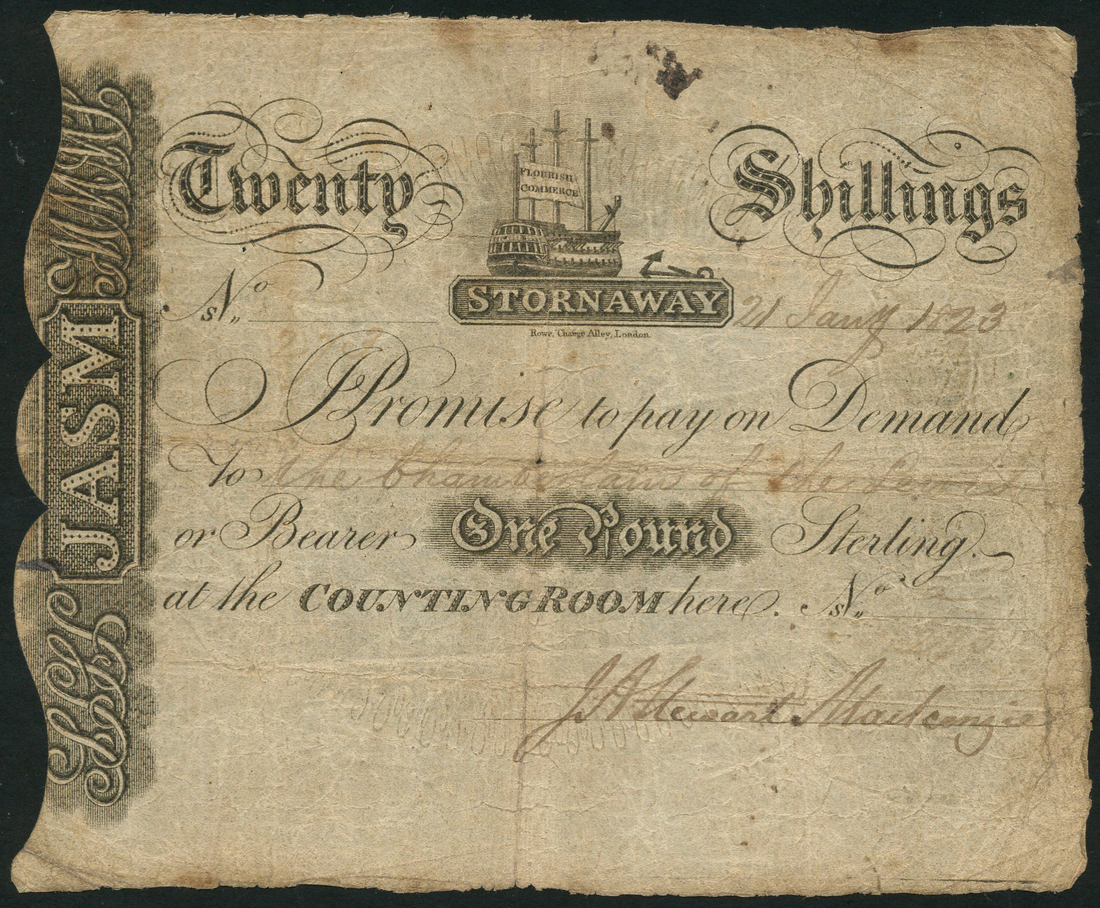 Twenty Shillings
FLOURISH
COMMERCE
No
STORNAWAY 21 Jany 1823
Rowe, Change Alley, London.
I Promise to pay on Demand
To the Chamberlain of the Lewis
or Bearer One Pound Sterling.
at the COUNTING ROOM here. No
J A Stewart Mackenzie
JASM